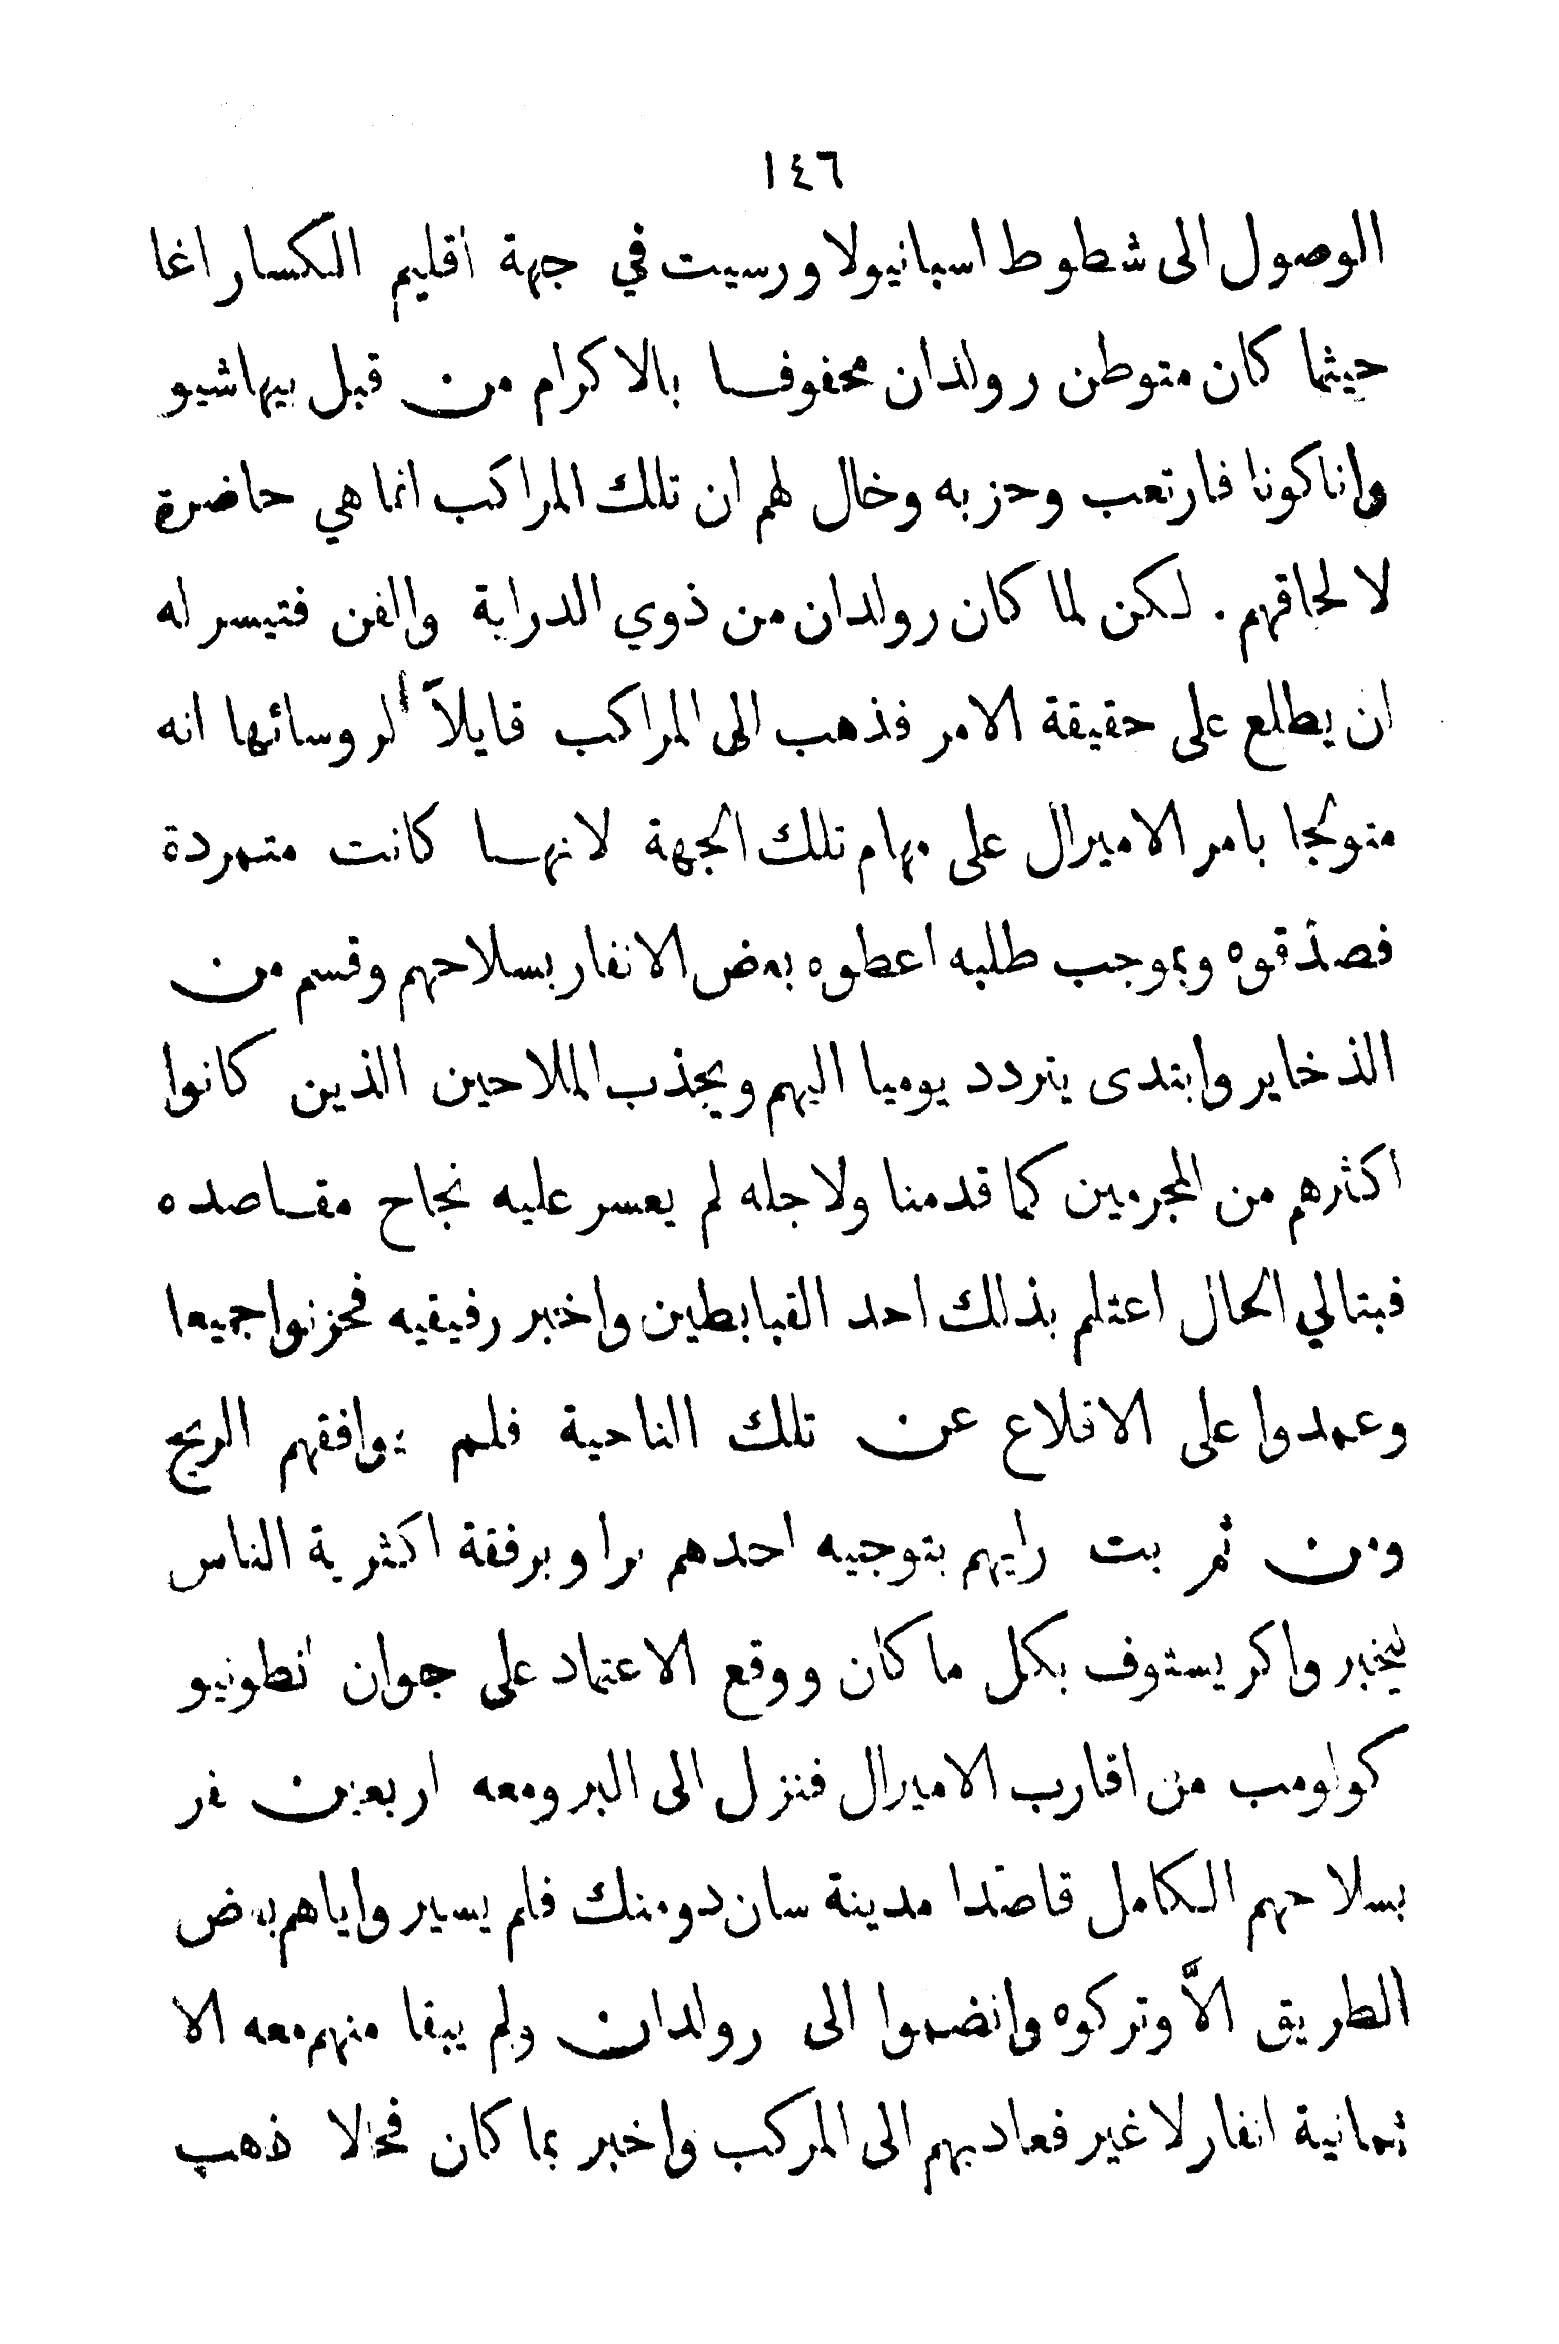 ١٤٦
الوصول الى شطوط اسبانيولا ورسيت في جهة اقليم الكساراغا
حيثما كان متوطن رولدان محفوفا بالاكرام من قبل بيهاشيو
واناكونا فارتعب وحزبه وخال لهم ان تلك المراكب انما هي حاضرة
لالحاقهم . لكن لما كان رولدان من ذوي الدراية والفن فتيسر له
ان يطلع على حقيقة الامر فذهب الى المراكب قايلاً لروسائها انه
متوكجا بامر الاميرال على مهام تلك الجهة لانها كانت متمردة
فصدقوه وبموجب طلبه اعطوه بعض الانفار بسلاحهم وقسم من
الذخاير وابتدى يتردد يوميا اليهم ويجذب الملاحين الذين كانوا
اكثرهم من المجرمين كما قدمنا ولاجله لم يعسر عليه نجاح مقاصده
فبتالي الحال اعتلم بذلك احد القبابطين واخبر رفيقيه فحزنوا جميعا
وعمدوا على الاقلاع عن تلك الناحية فلم يوافقهم الريح
ومن ثم بت رايهم بتوجيه احدهم برا وبرفقة اكثرية الناس
ليخبر واكريستوف بكل ما كان ووقع الاعتماد على جوان انطونيو
كولومب من اقارب الاميرال فنزل الى البر ومعه اربعين نفر
بسلاحهم الكامل قاصدا مدينة سان دومنك فلم يسير واياهم بعض
الطريق الاَّ وتركوه وانضموا الى رولدان ولم يبقا منهم معه الا
ثمانية انفار لا غير فعاد بهم الى المركب واخبر بما كان فحالا ذهب